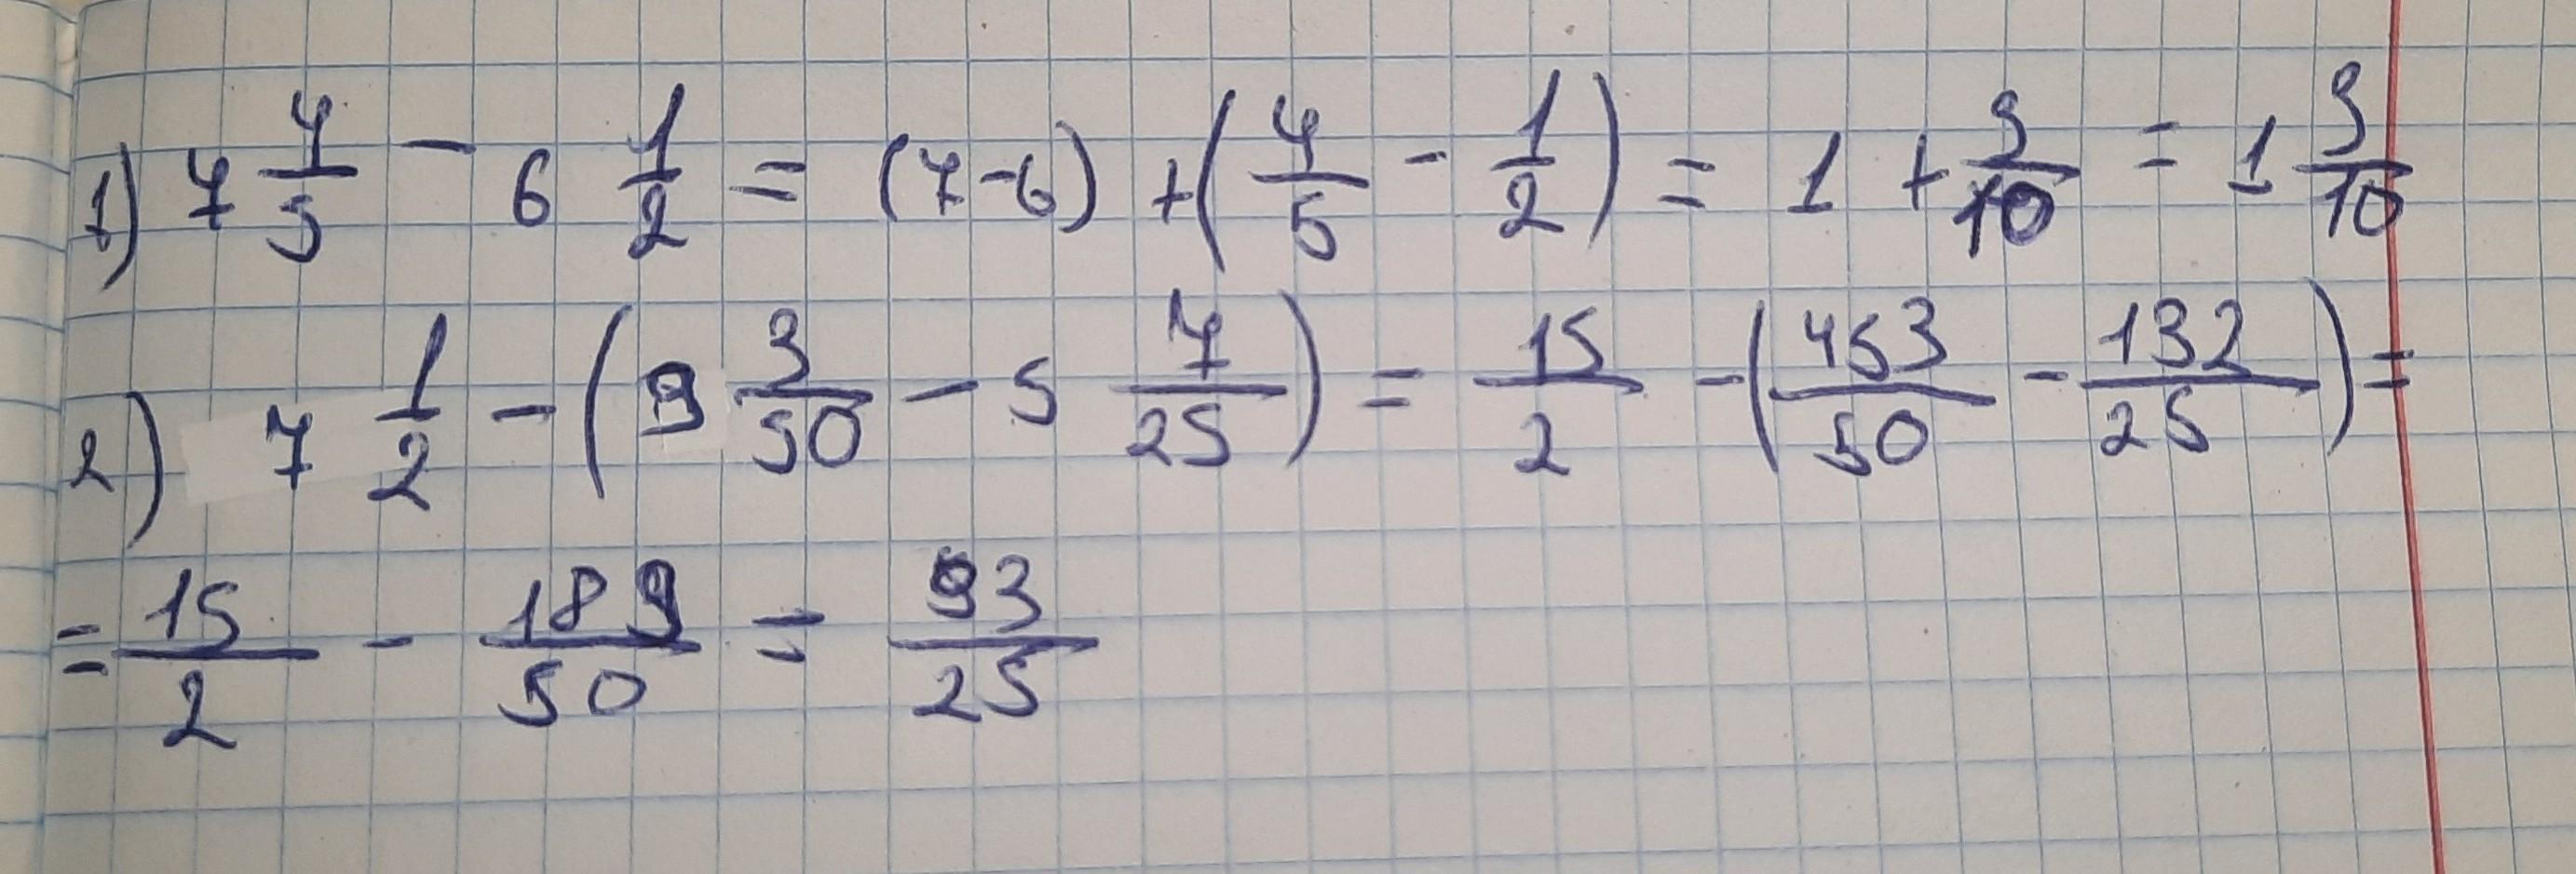 1) 7 4/5 - 6 1/2 = (7-6) + (4/5 - 1/2) = 1 + 3/10 = 1 3/10
2) 7 1/2 - (9 3/50 - 5 7/25) = 15/2 - (453/50 - 132/25) =
= 15/2 - 189/50 = 93/25